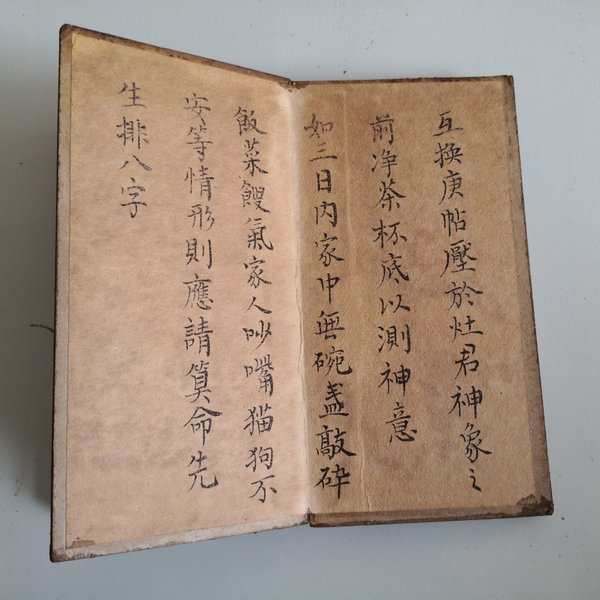 互換庚帖壓於灶君神象之
前净茶杯底以測神意
如三日内家中無碗盞敲碎
飯菜餿氣家人吵嘴猫狗不
安等情形則應請算命先
生排八字